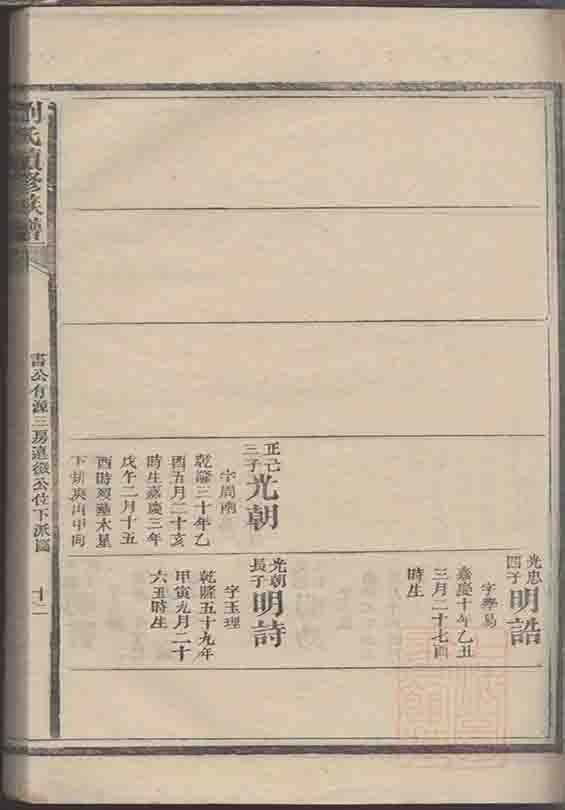 光忠
四子
明誥
字學易
嘉慶十年乙丑
三月二十七酉
時生
正己
三子
光朝
字周南
乾隆三十年乙
酉五月二十亥
時生嘉慶三年
戊午二月十五
酉時歿葬木星
下 庚山甲向
光朝
長子
明詩
字玉理
乾隆五十九年
甲寅九月二十
六丑時生
劉氏續修族譜
書公有源三房達徵公位下派圖
十二